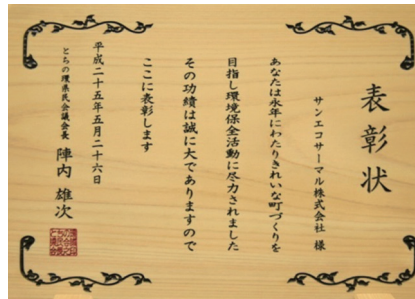 表彰状
サンエコサーマル株式会社 様
あなたは永年にわたりきれいな町づくりを
目指し環境保全活動に尽力されました
その功績は誠に大でありますので
ここに表彰します
平成二十五年五月二十六日
とちの環県民会議会長 陣内 雄次